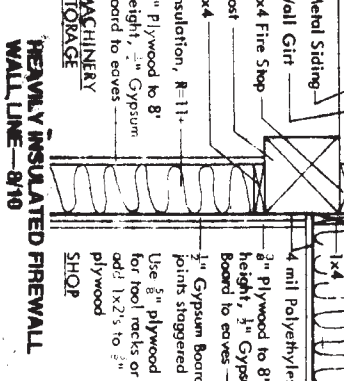 Metal Siding
Wall Girt
x4 Fire Stop
ost
x4
nsulation, R=11+
" Plywood to 8'
eight, ½" Gypsum
oard to eaves
MACHINERY
STORAGE
1x4
4 mil Polyethyle
⅜" Plywood to 8'
height, ½" Gyps
Board to eaves
½" Gypsum Board
joints staggered
Use ⅝" plywood
for tool racks or
add 1x2's to ⅜"
plywood
SHOP
HEAVILY INSULATED FIREWALL
WALL LINE—8/10